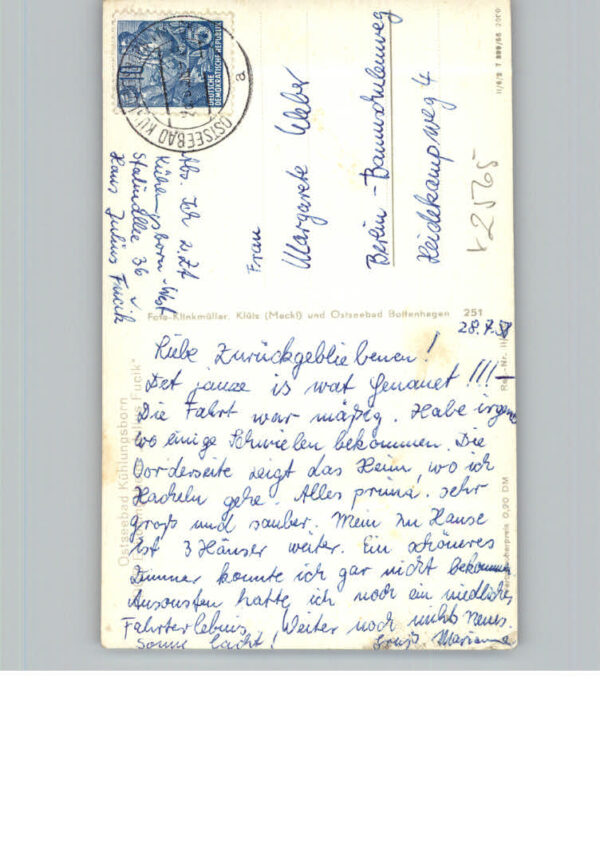 28.7.58
Liebe Zurückgebliebenen!
Det janze is wat Genauet!!!
Die Fahrt war mäßig. Habe irgend
wo einige Schwielen bekommen. Die
Vorderseite zeigt das Heim, wo ich
Hacheln gehe. Alles prima. sehr
groß und sauber. Mein zu Hause
ist 3 Häuser weiter. Ein schöneres
Zimmer konnte ich gar nicht bekommen
Ansonsten hatte ich noch ein niedliches
Fahrterlebnis. Weiter noch nichts Neues.
Sonne lacht! Gruß Marianne
Frau
Margarete Weber
Berlin-Baumschulenweg
Heidekampweg 4
K2565
Abs. Ich z.Zt
Kühlungsborn-West
Stalinallee 36
Haus Julius Fucik
DEUTSCHE
DEMOKRATISCHE REPUBLIK
10
OSTSEEBAD KÜ
a
Foto-Klinkmüller, Klütz (Meckl) und Ostseebad Boltenhagen 251
Ostseebad Kühlungsborn
Fucik"
Verbraucherpreis 0,20 DM